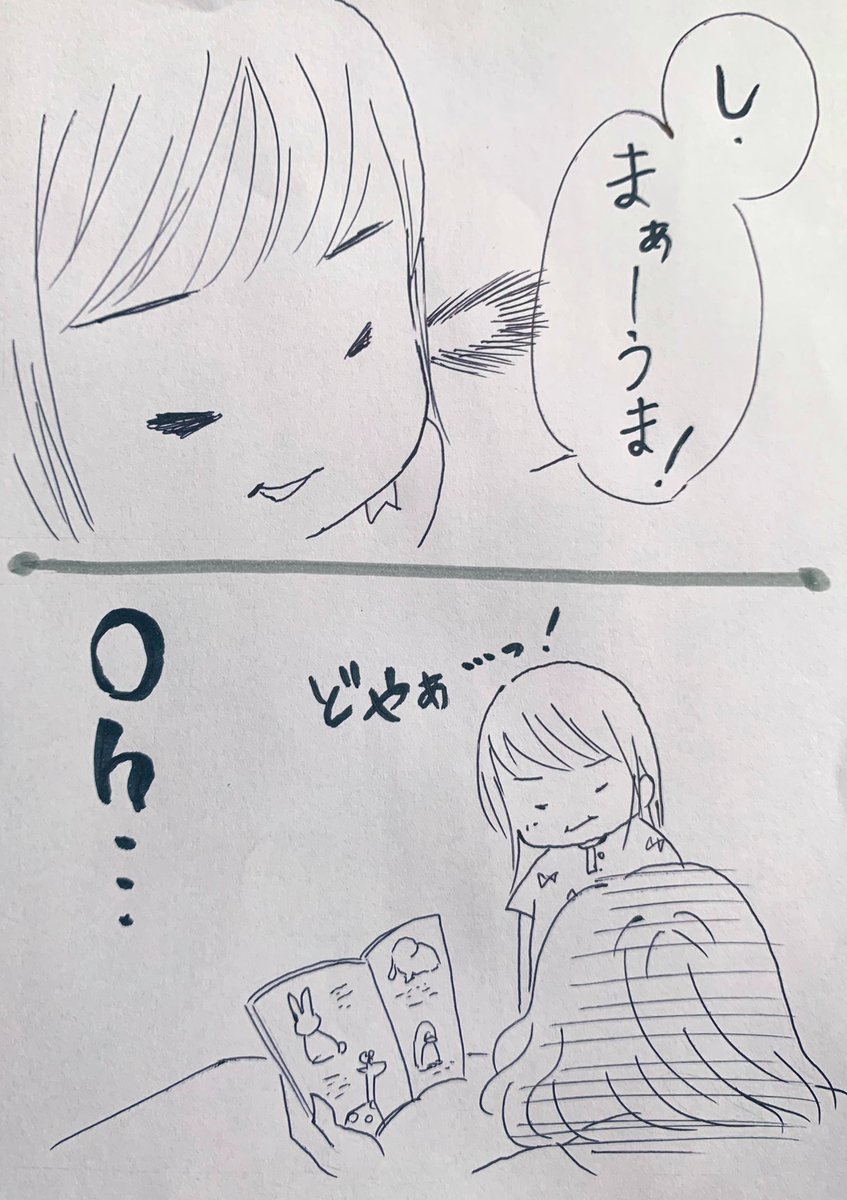 し.
まぁーうま!
どやぁ…っ!
Oh…